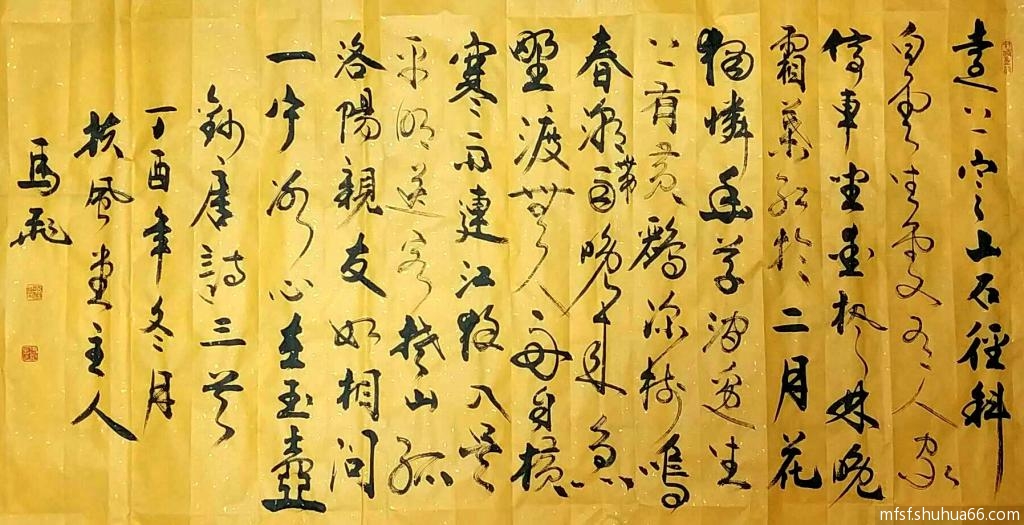 遠上寒山石徑斜
白雲生處有人家
停車坐愛楓林晚
霜葉紅於二月花
獨憐幽草澗邊生
上有黃鸝深樹鳴
春潮帶雨晚來急
野渡無人舟自橫
寒雨連江夜入吳
平明送客楚山孤
洛陽親友如相問
一片冰心在玉壺
鈔唐詩三首
丁酉年冬月
扶風堂主人
馬飛
mfsf.shuhua66.com